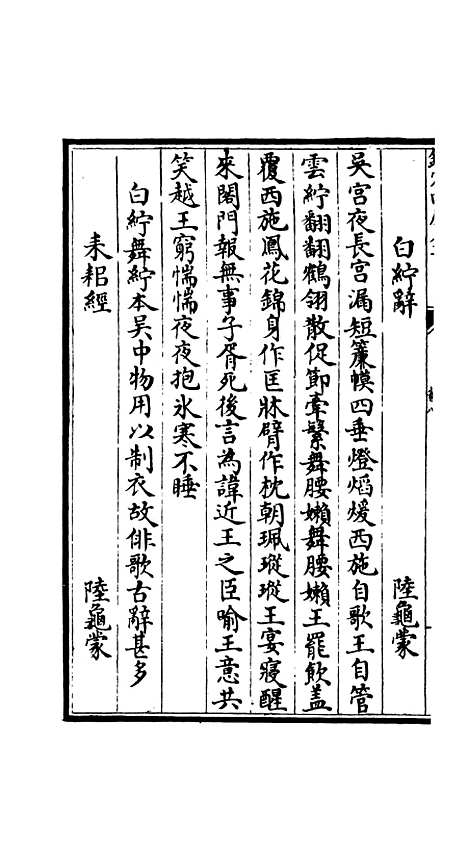 白紵辭 陸龜蒙
吳宫夜長宫漏短簾幙四垂燈熖煖西施自歌王自管
雲紵翻翻鶴翎散促節牽繁舞腰嬾舞腰嬾王罷飲蓋
覆西施鳳花錦身作匡牀臂作枕朝珮瑽瑽王宴寢醒
來閽門報無事子胥死後言為諱近王之臣喻王意共
笑越王窮惴惴夜夜抱氷寒不睡
白紵舞紵本吳中物用以制衣故俳歌古辭甚多
耒耜經 陸龜蒙